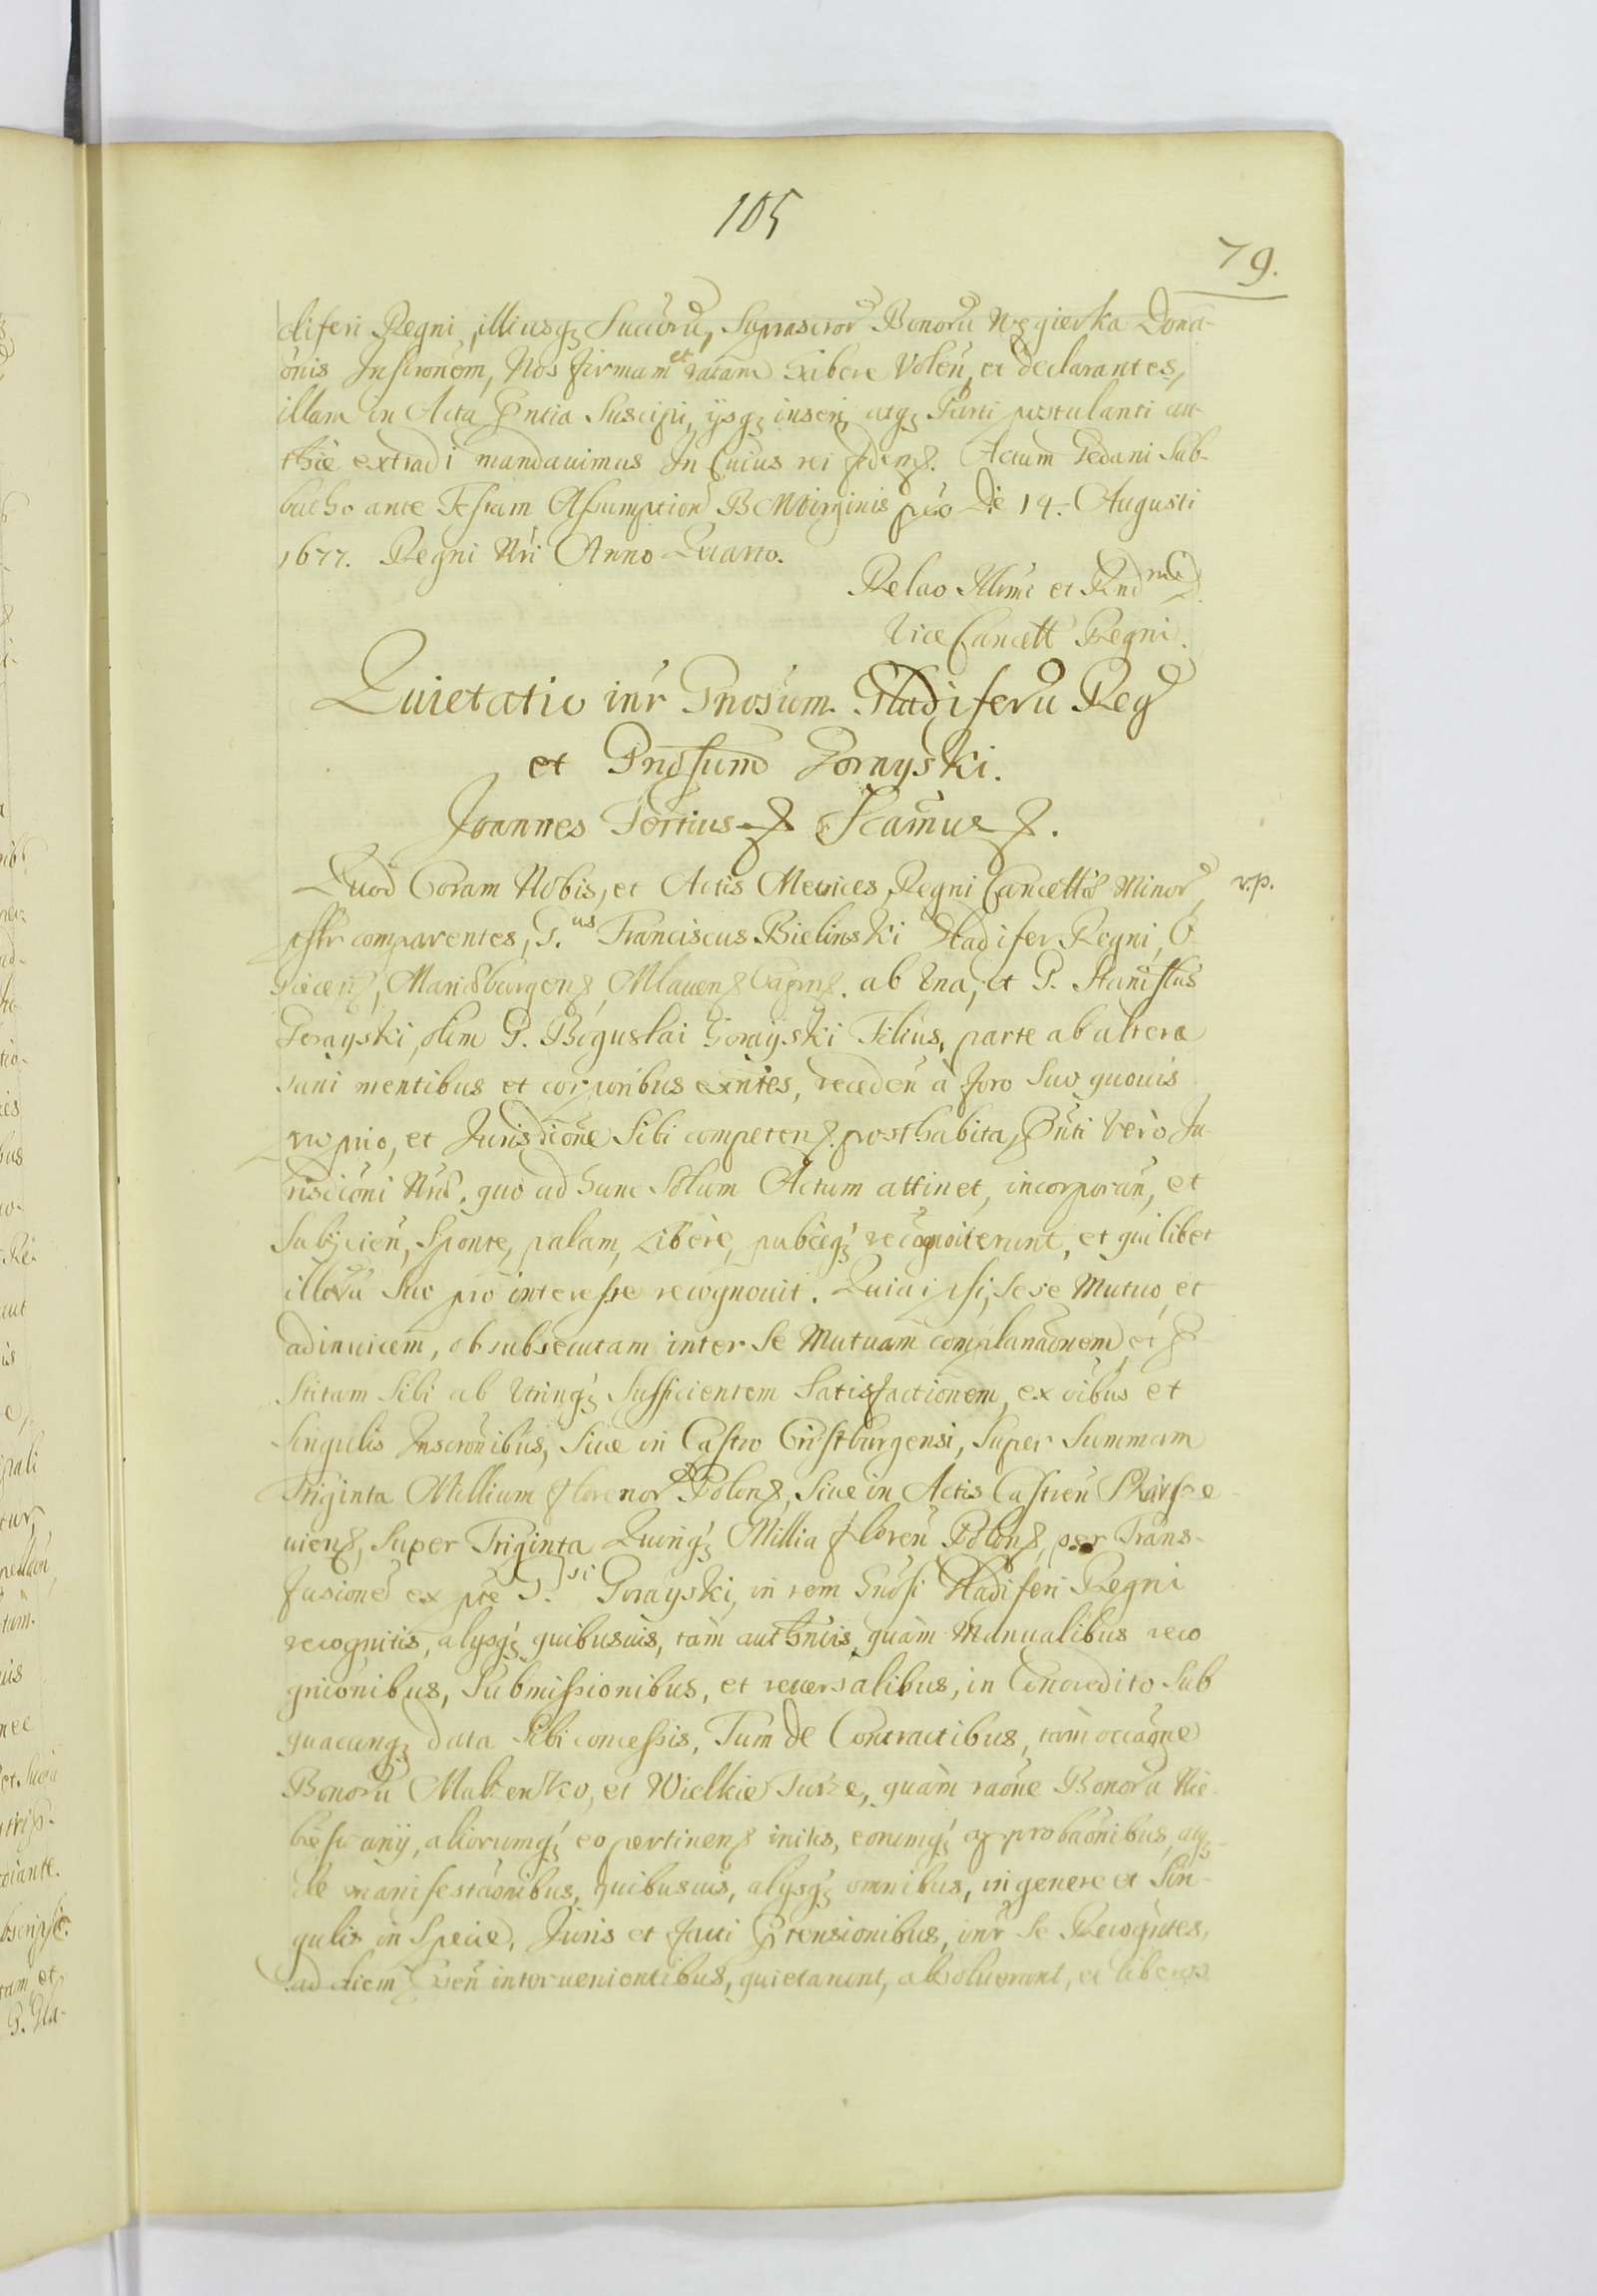 105
79.
diferi Regni, illiusq3 Succorũ, Suprascror Bonorũ Węgierka Dona-
õnis Inscronem, Nos firmam et ratam habere Voleñ, et declarantes,
illam in Acta Pñtia Suscipi, ysq3 inseri, atq3 Parti postulanti au-
thce extradi mandavimus In Cuius rei fidem. Actum Gedani Sab-
batho ante Festum Assumption B M Virginis pio Die 14. Augusti
1677. Regni Nri Anno Quarto.
Relao Illrmi et Rndmi
Vice Cancell Regni.
Quietatio inr Gnosum Gladiferũ Reg
et Gnosum Gorayski.
Joannes Tertius Scamus.
Quod Coram Nobis, et Actis Metrices Regni Cancellæ Minor
r.p.
psltr comparentes, G.us Franciscus Bielinski Gladifer Regni,
Mariæburgen, Mlaven Capns. ab Una, et G. Stanislus
Gorayski, olim G. Boguslai Gorayski Filius, parte ab altera
sani mentibus et corporibus exñtes, recedeñ à foro Suo quovis
pio, et Jurisdicõne Sibi competen. posthabita, Pñti verò Ju-
risdicõni Nræ. quo ad hunc Solum Actum attinet, incorporañ, et
Subijcieñ, Sponte, palam, Liberè, publceq3 recognoverunt, et quilibet
illorũ Suo pro interesse recognouit. Quia ipsi, Sese Mutuo, et
adinuicem, ob subsecutam inter Se Mutuam complanaõnem, et
Stitam Sibi ab Utrinq3 Sufficientem Satisfactionem, ex oibus et
Singulis Inscronibus, Siue in Castro Cristburgensi, Super Summam
Triginta Millium florenor Polon, Siue in Actis Castreñ Skarsze
uien, Super Triginta Quinq3 Millia floreñ Polon, per Trans-
fusione ex pte G.si Gorayski, in rem Gnosi Gladiferi Regni
recognitis, alysq3 quibusuis, tàm authncis, quàm Manualibus reco
gnicõnibus, Submissionibus, et reuersalibus, in Concredito Sub
quacunq3 data Sibi concessis, Tum de Contractibus, tàm occaõne
Bonorũ Malzenko, et Wielkie Turze, quàm raõne Bonorũ Nie-
aliorumq3 eo pertinen initis, eorumq3 approbaõnibus,
de manifestaõnibus, quibusuis, alysq3 omnibus, in genere et Sin-
gulis in Specie, Juris et facti Prætensionibus, inr Se Recogñtes,
ad diem interuenientibus, quietarunt, absoluerunt, et liberos